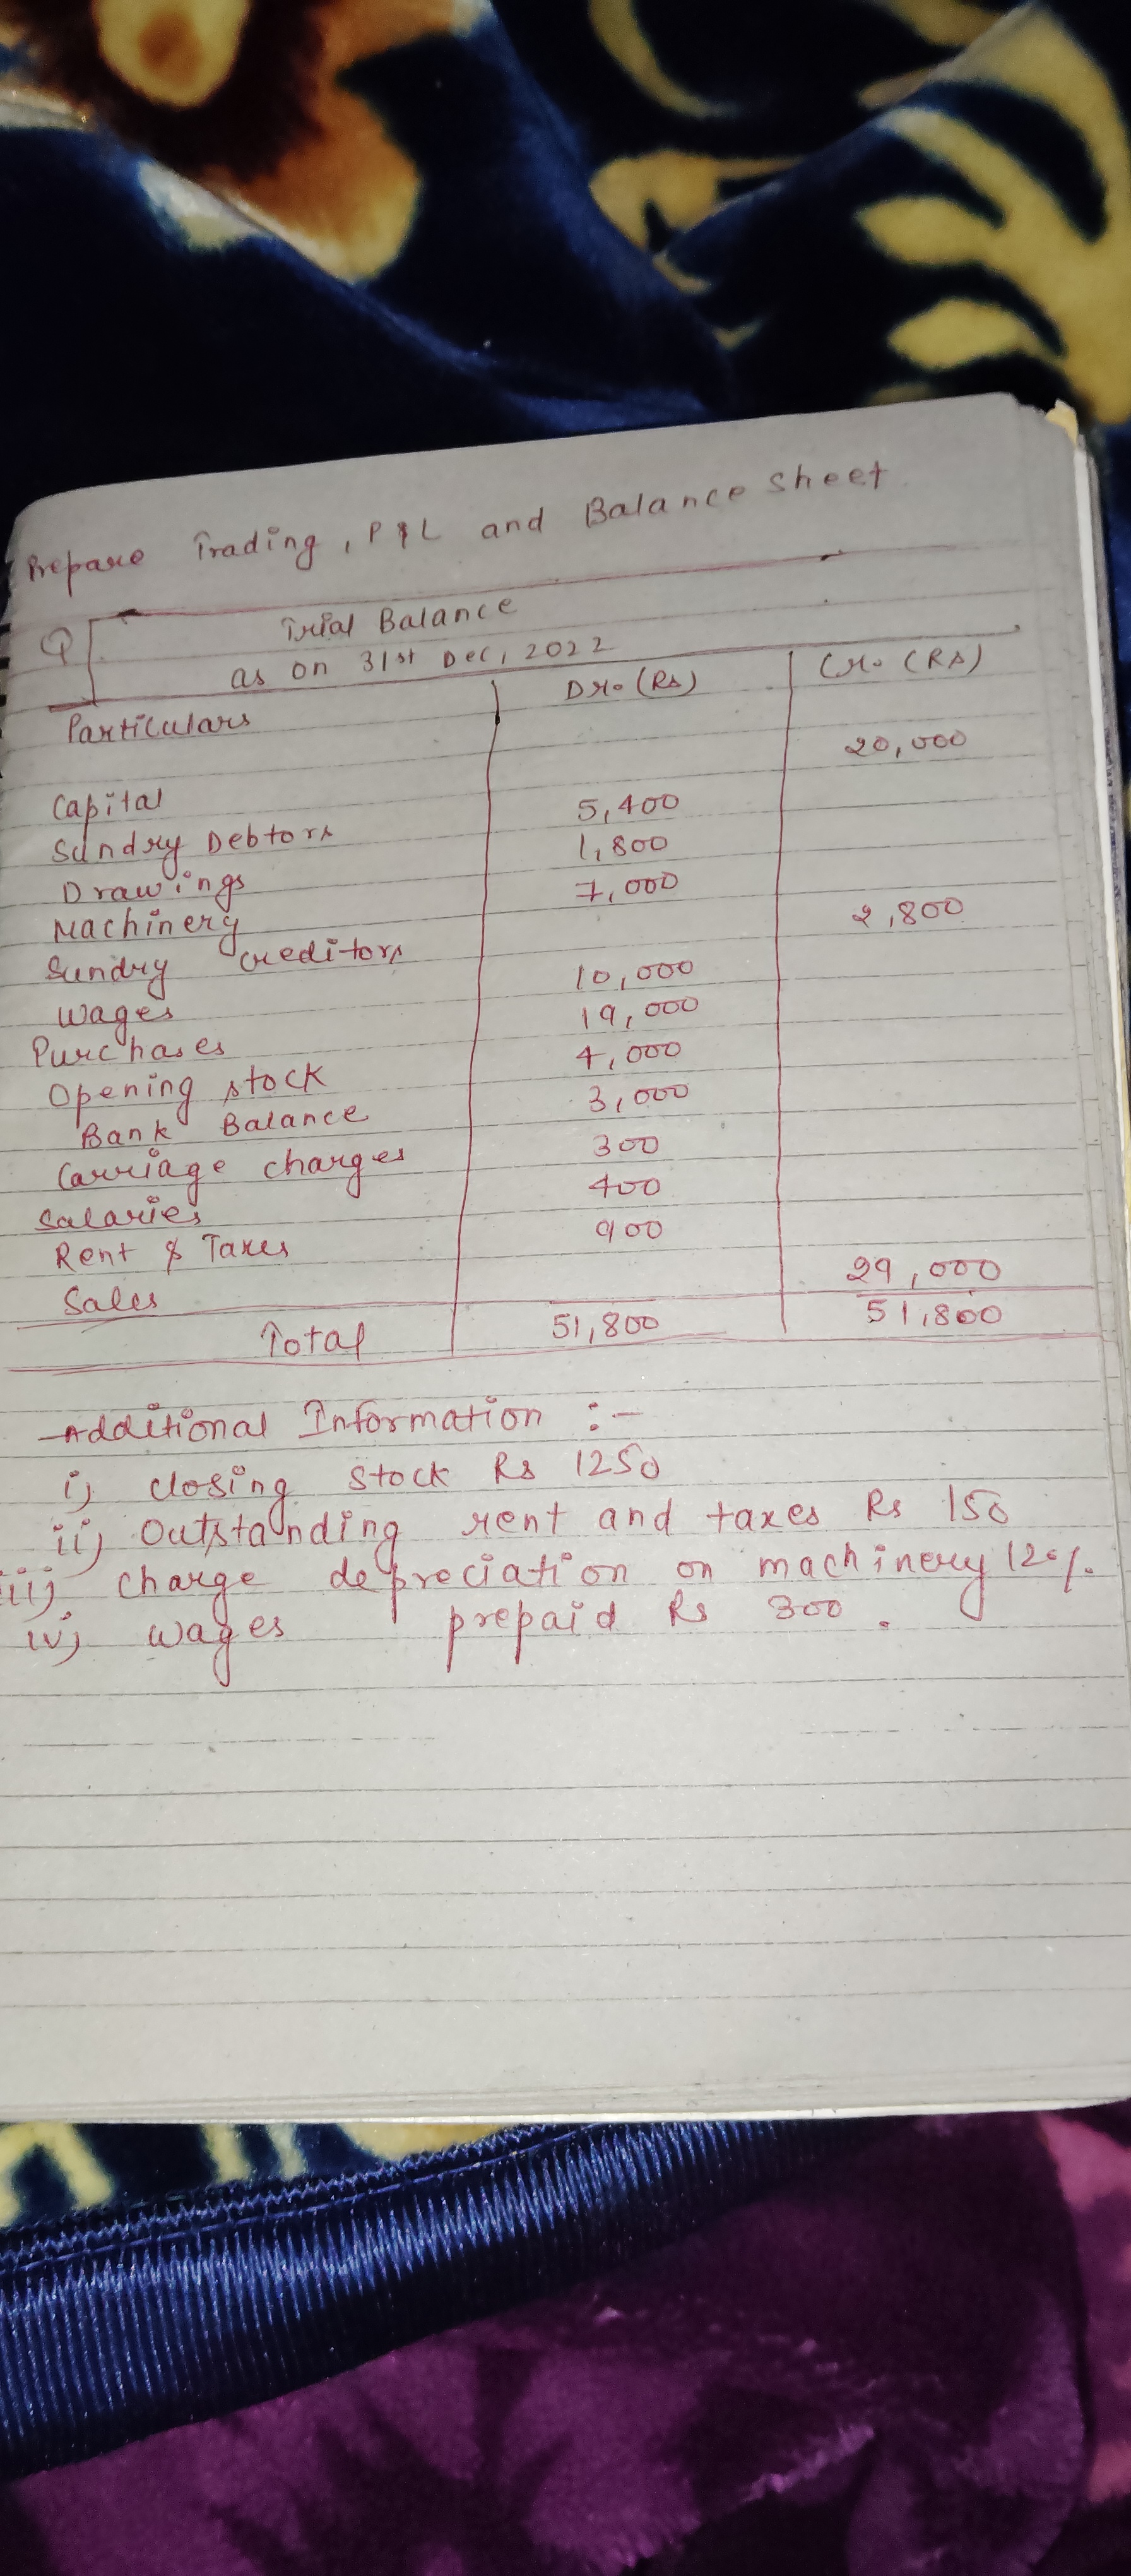 Prepare Trading, P&L and Balance Sheet.
Q Trial Balance
as on 31st Dec, 2022
Particulars Dr. (Rs) Cr. (Rs)
Capital 20,000
Sundry Debtors 5,400
Drawings 1,800
Machinery 7,000
Sundry Creditors 2,800
Wages 10,000
Purchases 19,000
Opening stock 4,000
Bank Balance 3,000
Carriage charges 300
Salaries 400
Rent & Taxes 900
Sales 29,000
Total 51,800 51,800
Additional Information :-
i) closing stock Rs 1250
ii) Outstanding rent and taxes Rs 150
iii) charge depreciation on machinery 12%.
iv) wages prepaid Rs 300.